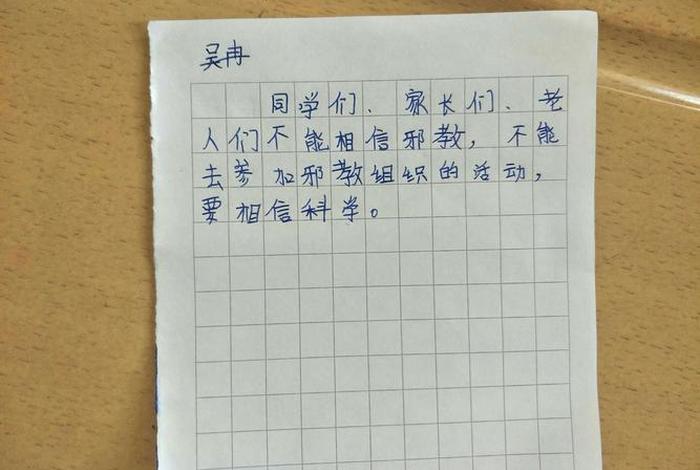 吴冉
同学们、家长们、老
人们不能相信邪教，不能
去参加邪教组织的活动，
要相信科学。